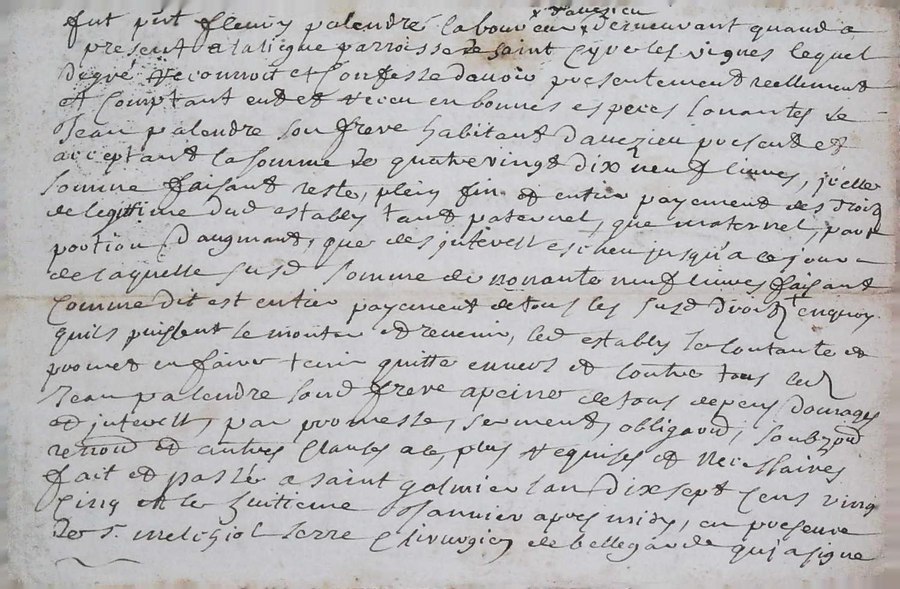 d'auezieu
fut pnt fleury palendre laboureur demeurant quand a
present a la tigue parroisse de saint Cyre les vignes lequel
degré reconnoit et Confesse d'avoir presentement reellement
et Comptant eut et receu en bonnes especes sonantes de
Jean palendre son frere habitant d'auezieu present et
acceptant la somme de quatre vingt dix neuf liures, jcelle
somme faisant reste, plein fin et entier payement des droits
de legitime dud estably tant paternel, que maternel, part
portion d'augmant, que des jnterest escheu jusqu'a ce jour
de laquelle susd somme de nonante neuf liures faisant
Comme dit est entier payement de tous les susd droits en quoy
quils puissent se monter et revenir, led estably se Contante et
promet en faire tenir quitte envers et Contre tous led
Jean palendre sond frere a peine de tous depens domages
et jnterest, par promesse, serment, obligaond, soubzond
renond et autres Clauses a ce plus requises et necessaires
fait et passé a saint galmier lan dix sept Cens vingt
Cinq et le huitieme Jannier apres midy, en presence
de Sr melchiol serre Chirurgien de bellegarde qui a signe